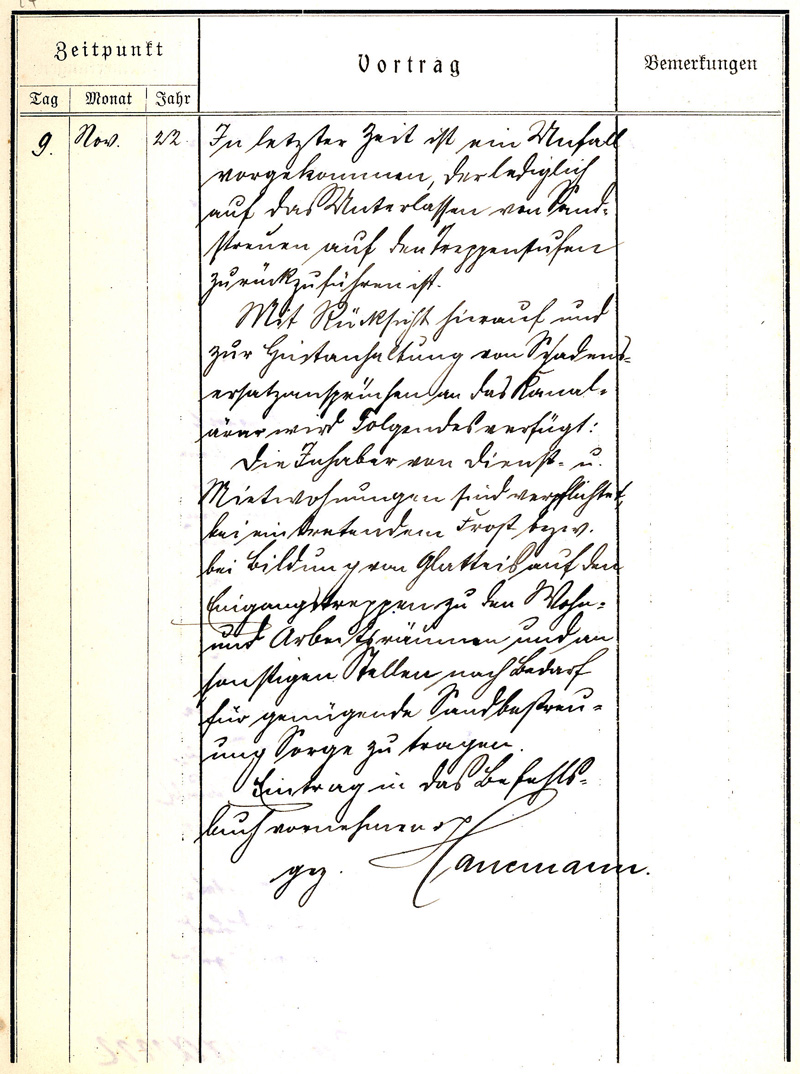 Zeitpunkt
Vortrag
Bemerkungen
Tag Monat Jahr
9. Nov. 22 In letzter Zeit ist ein Unfall
vorgekommen, der lediglich
auf das Unterlassen von Sand-
streuen auf den Treppenstufen
zurückzuführen ist.
Mit Rücksicht hierauf und
zur Hintanhaltung von Schadens-
ersatzansprüchen an das Kanal-
ärar wird Folgendes verfügt:
Die Inhaber von Dienst- u.
Mietwohnungen sind verpflichtet,
bei eintretendem Frost bezw.
bei Bildung von Glatteis auf den
Eingangstreppen zu den Wohn-
und Arbeitsräumen und an
sonstigen Stellen nach Bedarf
für genügende Sandbestreu-
ung Sorge zu tragen.
Eintrag in das Befehls-
buch vornehmen
gez. Hanemann.